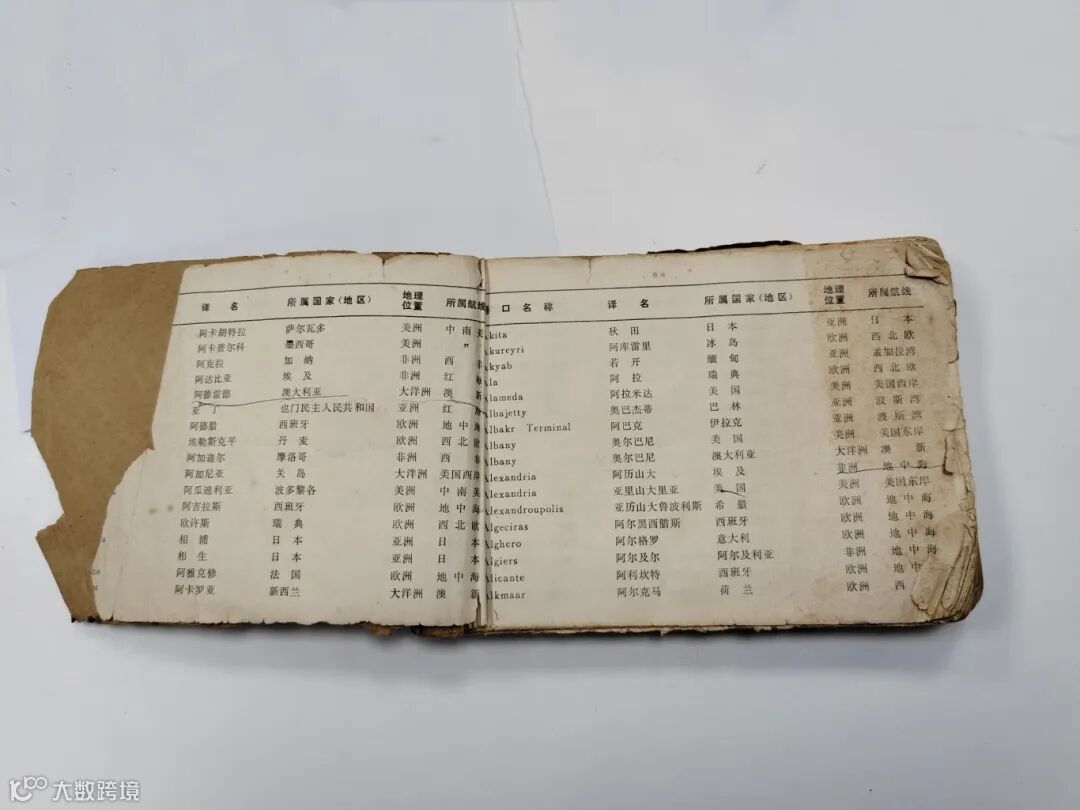 译 名 所属国家(地区) 地理位置 所属航线
阿卡胡特拉 萨尔瓦多 美洲 中南美
阿卡普尔科 墨西哥 美洲 〃
阿克拉 加纳 非洲 西非
阿达比亚 埃及 非洲 红海
阿德雷德 澳大利亚 大洋洲 澳新
亚丁 也门民主人民共和国 亚洲 红海
阿德腊 西班牙 欧洲 地中海
埃勒斯克平 丹麦 欧洲 西北欧
阿加迪尔 摩洛哥 非洲 西非
阿加尼亚 关岛 大洋洲 美国西岸
阿瓜迪利亚 波多黎各 美洲 中南美
阿吉拉斯 西班牙 欧洲 地中海
欧许斯 瑞典 欧洲 西北欧
相浦 日本 亚洲 日本
相生 日本 亚洲 日本
阿雅克修 法国 欧洲 地中海
阿卡罗亚 新西兰 大洋洲 澳新
口名称 译名 所属国家(地区) 地理位置 所属航线
kita 秋田 日本 亚洲 日本
kureyri 阿库雷里 冰岛 欧洲 西北欧
kyab 若开 缅甸 亚洲 孟加拉湾
la 阿拉 瑞典 欧洲 西北欧
lameda 阿拉米达 美国 美洲 美国西岸
Albajetty 奥巴杰蒂 巴林 亚洲 波斯湾
Albakr Terminal 阿巴克 伊拉克 亚洲 波斯湾
Albany 奥尔巴尼 美国 美洲 美国东岸
Albany 奥尔巴尼 澳大利亚 大洋洲 澳新
Alexandria 阿历山大 埃及 非洲 地中海
Alexandria 亚里山大里亚 美国 美洲 美国东岸
Alexandroupolis 亚历山大鲁波利斯 希腊 欧洲 地中海
Algeciras 阿尔黑西腊斯 西班牙 欧洲 地中海
Alghero 阿尔格罗 意大利 欧洲 地中海
Algiers 阿尔及尔 阿尔及利亚 非洲 地中海
Alicante 阿利坎特 西班牙 欧洲 地中海
Alkmaar 阿尔克马 荷兰 欧洲 西
大数跨境